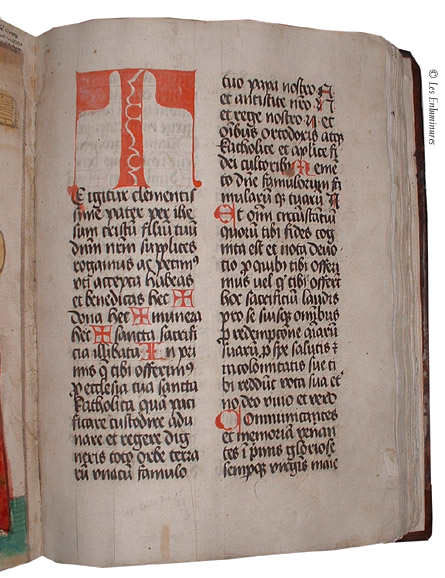 T
E igitur clementis
sime pater per ihe
sum cristū filiū tuū
dnm nrm supplices
rogamus ac petimꝰ
vti accepta habeas
et benedicas hec ✠
dona hec ✠ munera
hec ✠ sancta sacrifi
cia illibata In pri
mis q̄ tibi offerimꝰ
p ecclesia tua sancta
katholica quā paci
ficare custodire adu
nare et regere dig
neris toto orbe terra
rū vnacū famulo
tuo papa nostro N
et antistite nro N
et rege nostro N et
oībus ortodoxis atqꝫ
katholice et aplice fi
dei cultoribꝰ Meme
to dne famulorum fa
mularū qꝫ tuarū N
Et oīm circūstātiū
quorū tibi fides cog
nita est et nota deuo
tio p quibꝰ tibi offeri
mus vel qⁱ tibi offerūt
hoc sacrificiū laudis
pro se suisqꝫ omībus
p redemptione aīarū
suarū p spe salutis ⁊
incolomitatis sue ti
bi reddūt vota sua et
no deo viuo et vero
Communicantes
et memoriā veneran
tes ī pīmis gloriose
sempqꝫ virgīs marie
© Les Enluminures